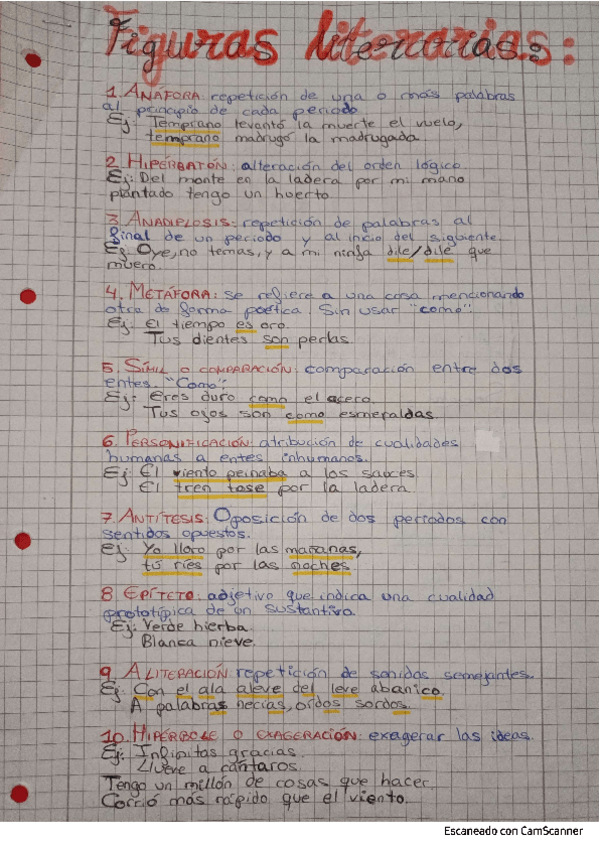 Figuras literarias:
1. ANÁFORA: repetición de una o más palabras
al principio de cada periodo
Ej: Temprano levantó la muerte el vuelo,
temprano madrugó la madrugada.
2. HIPÉRBATON: alteración del orden lógico.
Ej: Del monte en la ladera por mi mano
plantado tengo un huerto.
3. ANADIPLOSIS: repetición de palabras al
final de un periodo y al inicio del siguiente.
Ej. Oye, no temas, y a mi ninfa dile/dile que
muero.
4. METÁFORA: se refiere a una cosa mencionando
otra de forma poética. Sin usar "como"
Ej: El tiempo es oro.
Tus dientes son perlas
5. SÍMIL O COMPARACIÓN: comparación entre dos
entes. "Como".
Ej: Eres duro como el acero.
Tus ojos son como esmeraldas
6. PERSONIFICACIÓN: atribución de cualidades
humanas a entes inhumanos.
Ej: El viento peinaba a los sauces
El tren tose por la ladera
7. ANTÍTESIS: Oposición de dos periodos con
sentidos opuestos.
Ej: Yo lloro por las mañanas,
tú ríes por las noches
8 EPÍTETO: adjetivo que indica una cualidad
prototípica de un sustantivo.
Ej: Verde hierba.
Blanca nieve.
9. ALITERACIÓN: repetición de sonidos semejantes.
Ej: Con el ala aleve del leve abanico.
A palabras necias, oídos sordos.
10. HIPÉRBOLE O EXAGERACIÓN: exagerar las ideas.
Ej: Infinitas gracias.
Llueve a cántaros.
Tengo un millón de cosas que hacer.
Corrió más rápido que el viento.
Escaneado con CamScanner